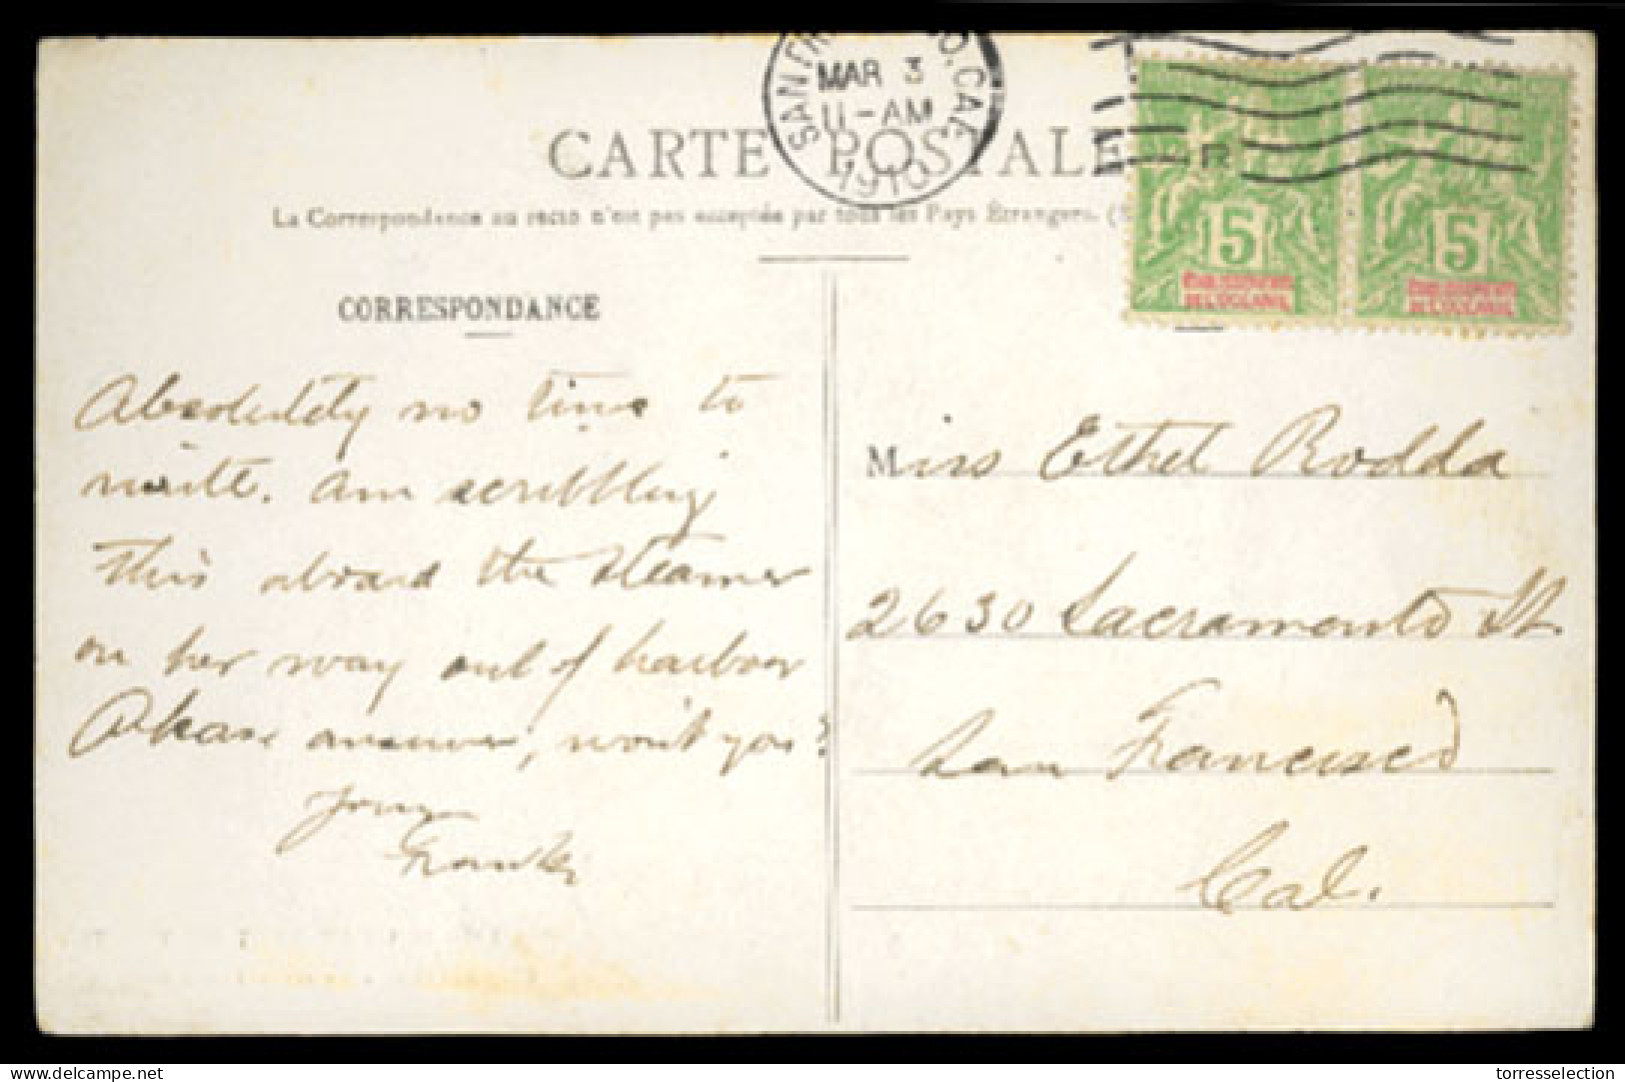 MAR 3
11-AM
1910
CARTE POSTALE
La Correspondance au recto n'est pas acceptée par tous les Pays Étrangers.
5 5
ÉTABLISSEMENTS DE L'OCÉANIE
ÉTABLISSEMENTS DE L'OCÉANIE
CORRESPONDANCE
Absolutely no time to
write. Am scribbling
this aboard the steamer
on her way out of harbor
Please answer, won't you?
Yours
Miss Ethel Rodda
2630 Sacramento St.
San Francisco
Cal.
delcampe.net
torresselection